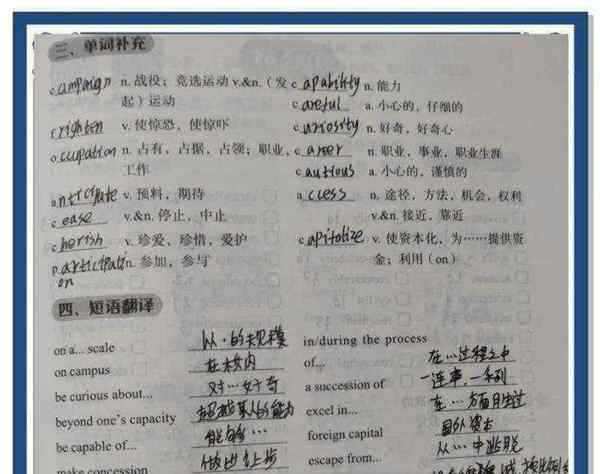 三、单词补充
campaign n. 战役；竞选运动 v.&n.（发起）运动
frighten v. 使惊恐，使惊吓
occupation n. 占有，占据，占领；职业，工作
anticipate v. 预料，期待
cease v.&n. 停止，中止
cherish v. 珍爱，珍惜，爱护
participation n. 参加，参与
capability n. 能力
careful a. 小心的，仔细的
curiosity n. 好奇，好奇心
career n. 职业，事业，职业生涯
cautious a. 小心的，谨慎的
access n. 途径，方法，机会，权利
v.&n. 接近，靠近
capitalize v. 使资本化，为……提供资金；利用（on）
四、短语翻译
on a... scale 以…的规模
on campus 在校内
be curious about... 对…好奇
beyond one's capacity 超越某人的能力
be capable of... 能够…
make concession 做出让步
in/during the process of... 在…过程之中
a succession of 一连串，一系列
excel in... 在…方面胜过
foreign capital 国外资本
escape from... 从…中逃脱